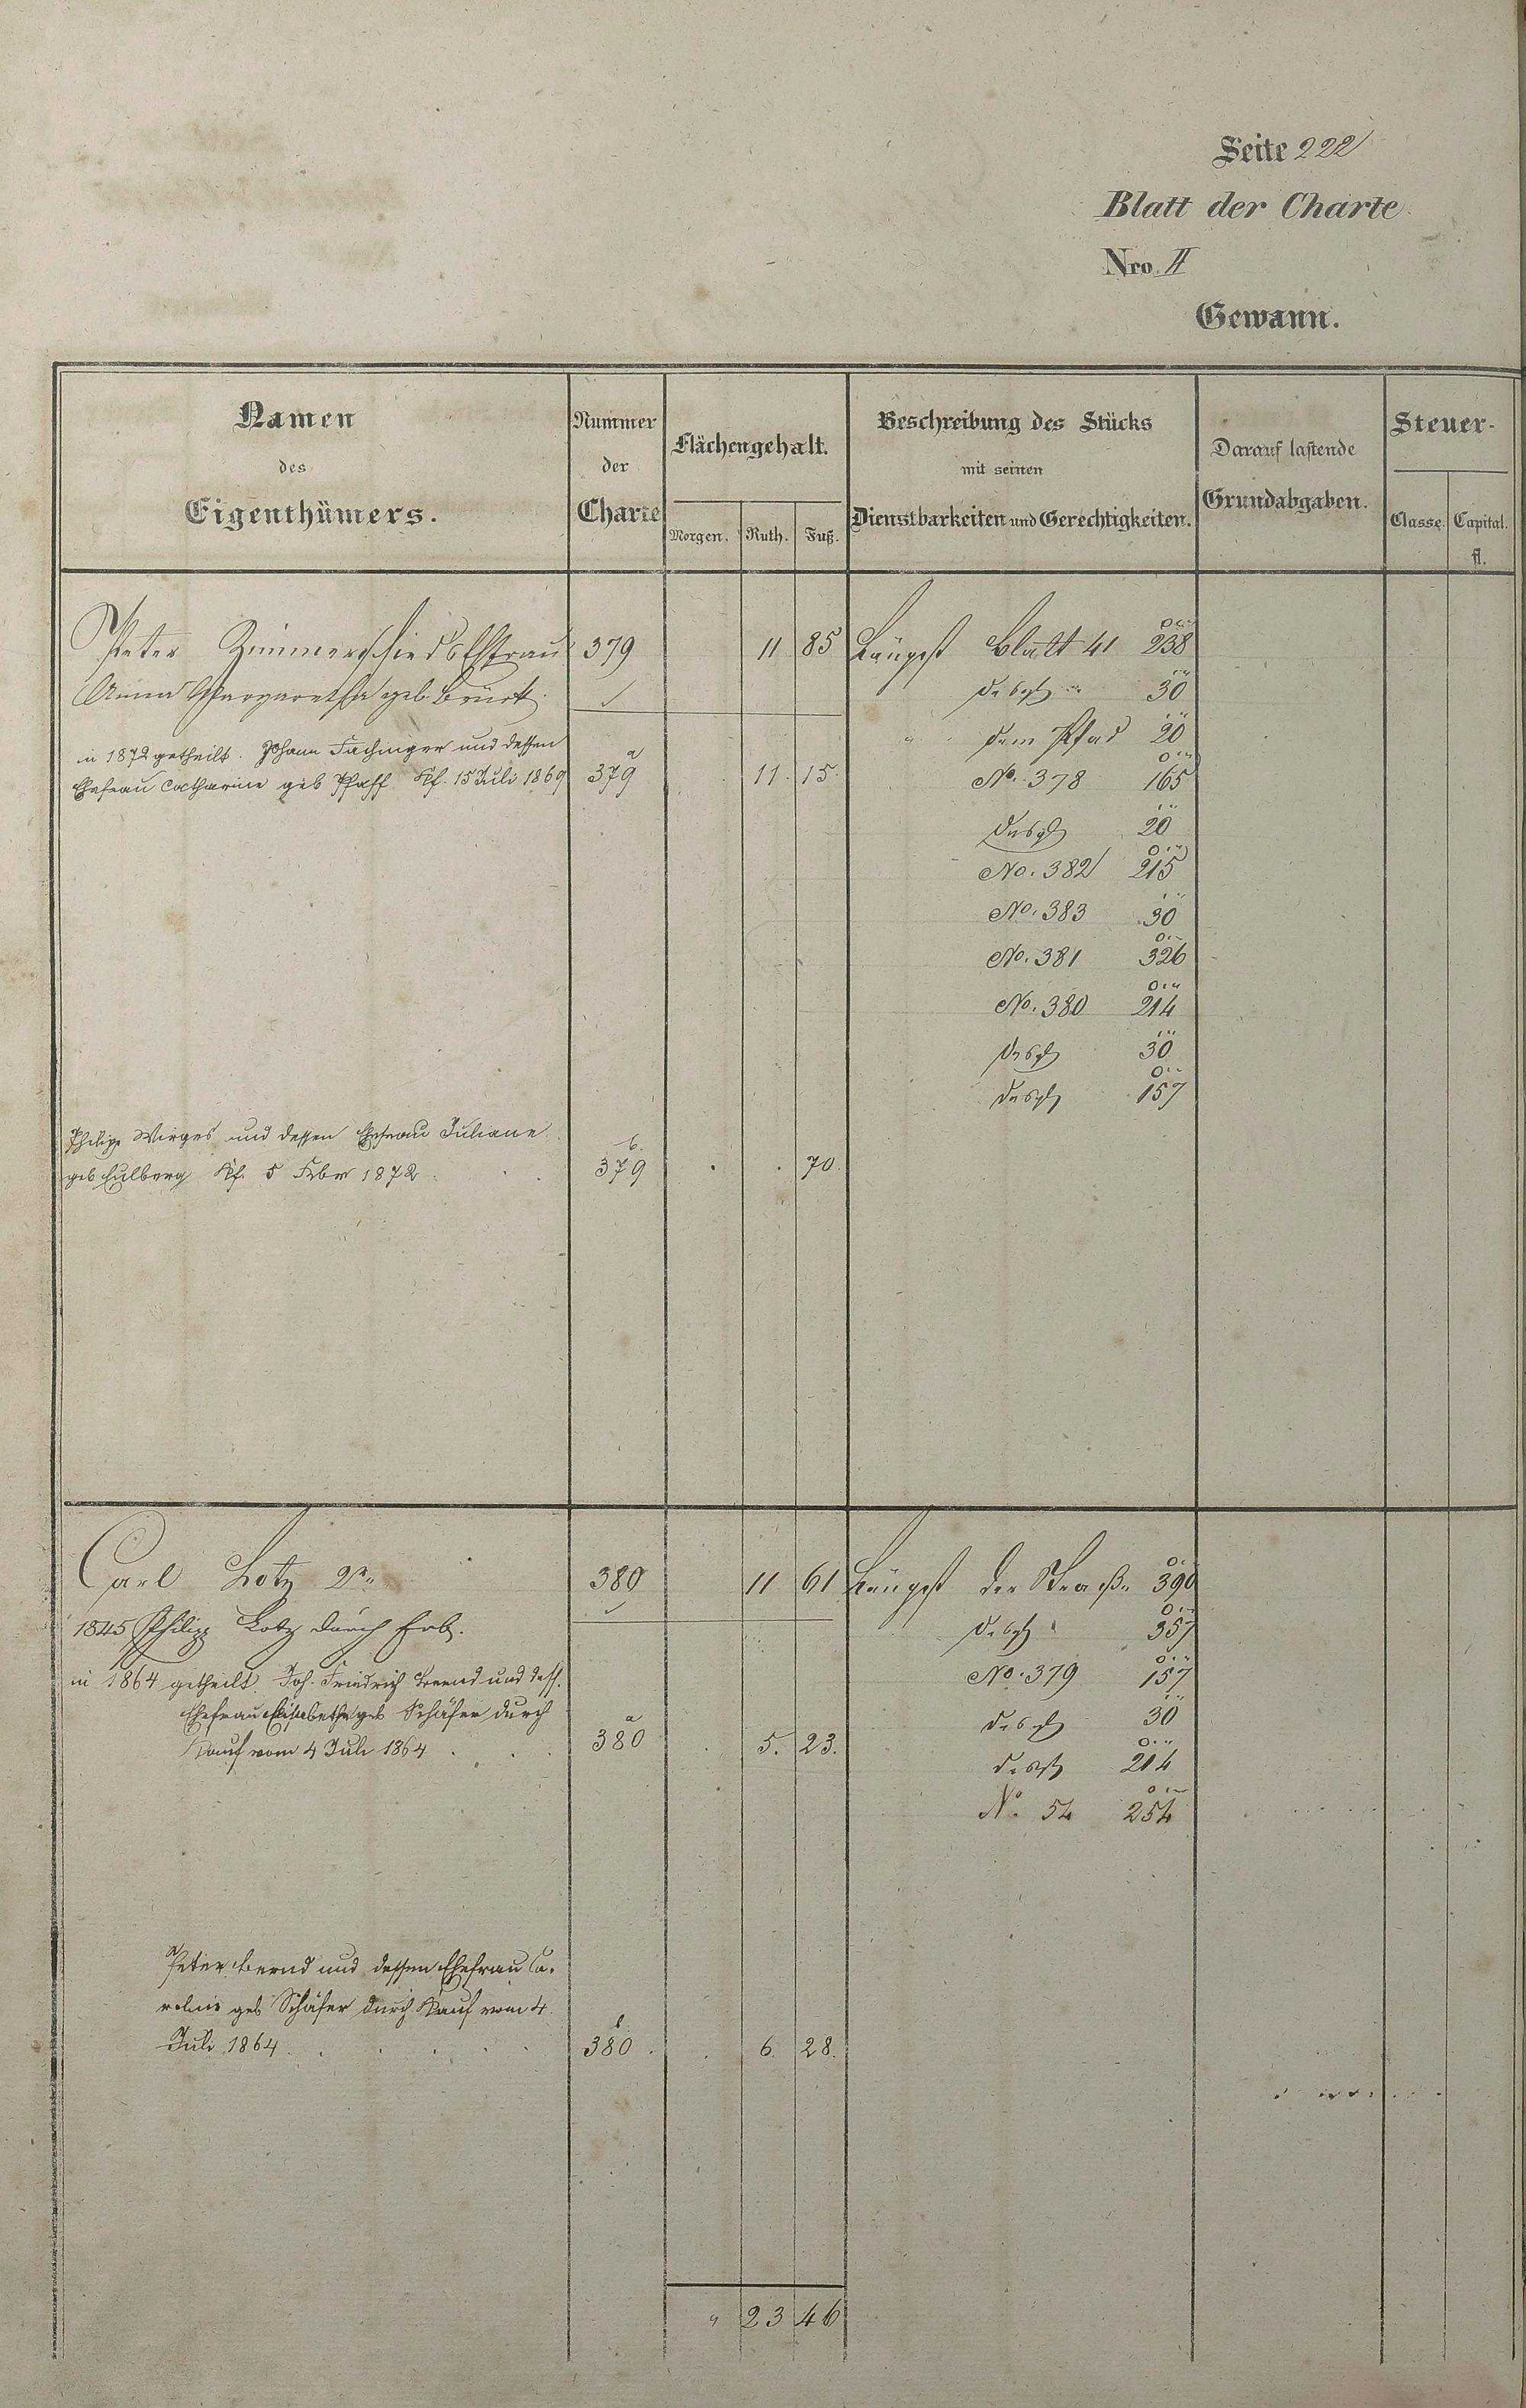 Seite 222
Blatt der Charte
Nro. II
Gewann.
Namen des Eigenthümers.
Nummer der Charte
Flächengehalt.
Morgen. Ruth. Fuß.
Beschreibung des Stücks mit seinen Dienstbarkeiten und Gerechtigkeiten.
Darauf lastende Grundabgaben.
Steuer-
Classe. Capital. fl.
Peter Zimmerschieds Ehfrau 379 11 85 Längst Blatt 41 238
Anna Margaretha geb. desgl 30
dem Pfad 20
in 1872 getheilt. Johann Fachinger und dessen
Ehefrau Catharine geb Pfaff Kf. 15 Juli 1869 379 a 11. 15. No. 378 165
desgl 20
No. 382 215
No. 383 30
No. 381 326
No. 380 214
desgl 30
desgl 157
Philipp Wirges und dessen Ehefrau Juliane
geb Eulberg Kf. 5 Febr 1872 379 b. 70.
Carl Lotz 2r 380 11 61 Längst der Straße 390
1845 Philipp Lotz durch Erb. desgl 357
No. 379 157
in 1864 getheilt. Joh. Friedrich Bernd und dess.
Ehefrau Elisabethe geb Schäfer durch desgl 30
Kauf vom 4 Juli 1864 380 a 5. 23. desgl 214
No. 54 254
Peter Bernd und dessen Ehefrau Ca-
roline geb Schäfer durch Kauf vom 4
Juli 1864 380 b 6. 28.
" 23 46